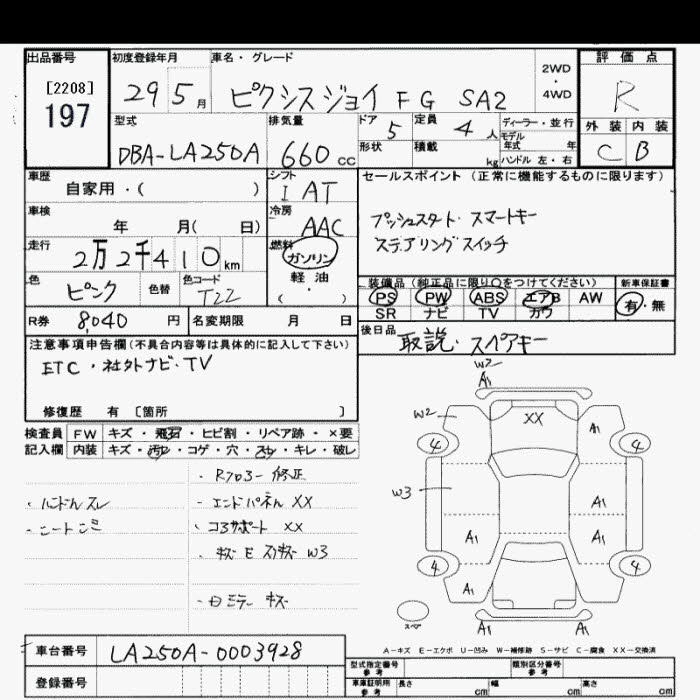 出品番号 初度登録年月 車名・グレード 2WD・4WD 評価点
[2208] 197
29 5月 ピクシスジョイ FG SA2 R
型式 排気量 ドア 5 定員 4人 ディーラー・並行 外装 内装
モデル年式 年
DBA-LA250A 660cc 形状 積載 kg ハンドル 左・右 C B
車歴 シフト セールスポイント (正常に機能するものに限ります)
自家用・( ) I AT
車検 冷房 プッシュスタート スマートキー
年 月( 日) AAC ステアリングスイッチ
走行 燃料
2万2千410km ガソリン
色 色替 色コード 軽油・ 装備品 (純正品に限り○をつけてください) 新車保証書
ピンク T22 ( ) PS PW ABS エアB AW 有・無
SR ナビ TV カワ
R券 8,040円 名変期限 月 日 後日品
取説・スペアキー
注意事項申告欄(不具合内容等は具体的に記入して下さい)
ETC・社外ナビ・TV
修復歴 有 [箇所 ]
検査員 FW キズ・飛石・ヒビ割・リペア跡・×要
記入欄 内装 キズ・汚れ・コゲ・穴・スレ・キレ・破レ
・ハンドルスレ
・R フロアー 修正
・エンドパネル XX
・コアサポート XX
・キズ E スリキズ W3
ミラー キズ
W2 A1
W2 XX A1
4 4
W3 A1
A1 A1
4 A1 4
スペア A1 A1
A-キズ E-エクボ U-凹み W-補修跡 S-サビ C-腐食 XX-交換済
車台番号 LA250A-0003928
登録番号
型式指定番号 参考 類別区分番号 参考
車庫証明用 参考 長さ cm 幅 cm 高さ cm